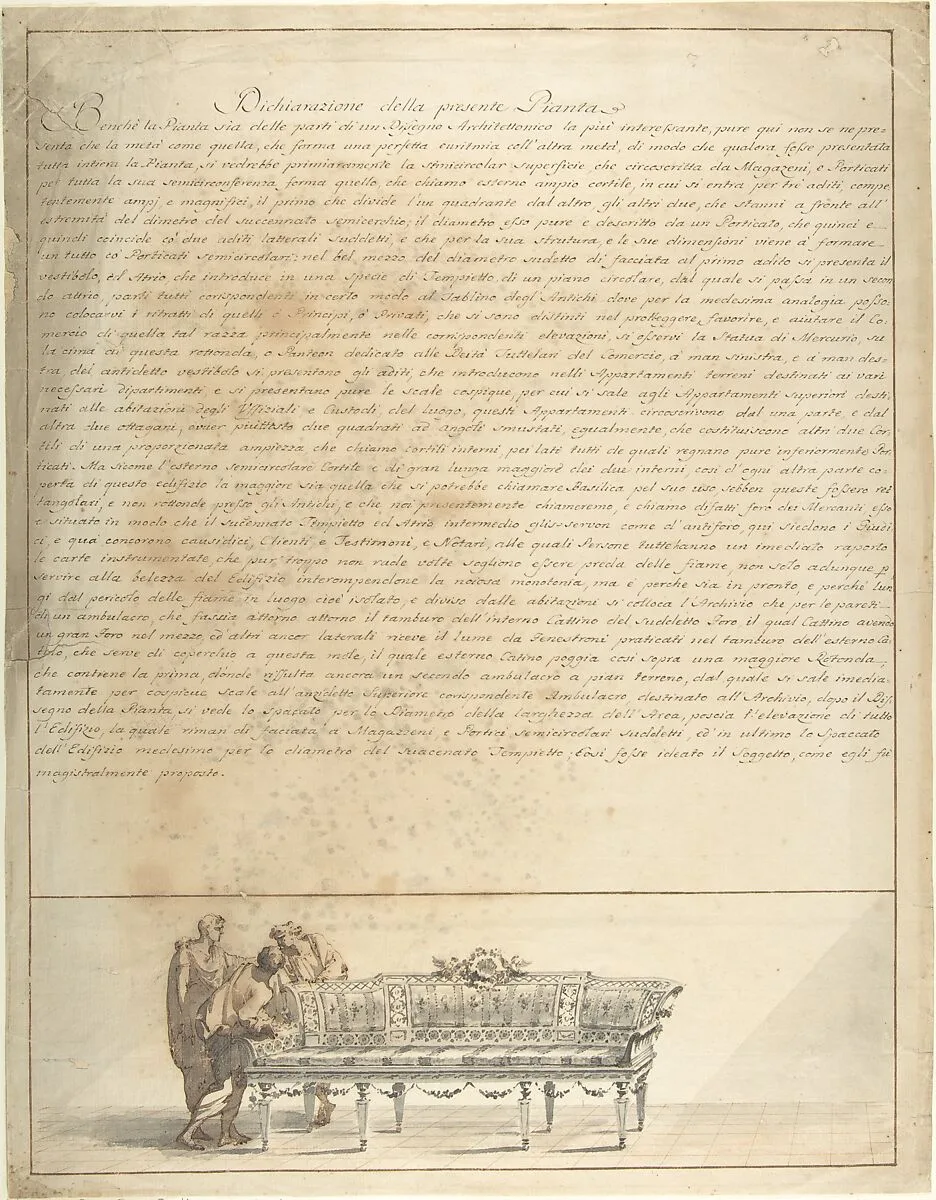 Dichiarazione della presente Pianta
Benchè la Pianta sia delle parti di un Disegno Architettonico la più interessante, pure qui non se ne pre-
senta che la metà come quella, che forma una perfetta euritmia coll'altra metà, di modo che qualora fosse presentata
tutta intiera la Pianta, si vedrebbe primiaramente la semicircolar superficie che circoscritta da Magazeni, e Porticati
per tutta la sua semicirconferenza forma quello, che chiamo esterno ampio cortile, in cui si entra per trè aditi, compe
tentemente ampj, e magnifici, il primo che divide l'un quadrante dal altro gli altri due, che stanni a fronte all'
estremità del dimetro del succennato semicerchio; il diametro esso pure è descritto da un Porticato, che quinci e
quindi coincide co' due aditi latterali suddetti, e che per la sua strutura, e le sue dimensioni viene à formare
un tutto co' Porticati semicircolari: nel bel mezzo del diametro sudetto di facciata al primo adito si presenta il
vestibolo, ed Atrio che introduce in una specie di Tempietto di un piano circolare, dal quale si passa in un secon
do attrio, parti tutti corispondenti in certo modo al Tablino degl' Antichi dove per la medesima analogia posso
no colocarvi i ritratti di quelli ò Principi, ò Privati, che si sono distinti nel proteggere, favorire, e aiutare il Co
mercio di quella tal razza principalmente nelle corrispondenti elevazioni, si osservi la Statua di Mercurio, su
la cima di questa rottonda, o Panteon dedicato alle Deità Tuttelari del Comercio, à man sinistra, e à man des-
tra, dei antidetto vestibolo si presentono gli aditi, che introducono nelli Appartamenti terreni destinati ai vari
necessari dipartimenti, e si presentano pure le scale cospique, per cui si sale agli Appartamenti superiori desti
nati alle abitazione degli Uffiziali e Custodi, del luogo, questi Appartamenti circoscrivono dal una parte, e dal
altra due ottagani, ovver piuttosto due quadrati ad angoli smustati, egualmente, che costituiscono altri due Cor
tili di una proporzionata ampiezza che chiamo cortili interni, pei lati tutti de quali regnano pure inferiormente Por
ticati. Ma sicome l'esterno semicircolare Cortile è di gran lunga maggiore dei due interni, così d'ogni altra parte co-
perta di questo edifizio la maggiore sia quella che si potrebbe chiamare Basilica pel suo uso, sebben queste fossero ret
tangolari, e non rottonde presso gli Antichi, e che noi presentemente chiameremo, e chiamo difatti foro dei Mercanti esso
è situato in modo che il sucennato Tempietto ed Atrio intermedio gliservon come d'antiforo, qui siedono i Giudi
ci, e quà concorono causidici, Clienti, e Testimoni, e Notari, alle quali Persone tutte hanno un imediato raporto
le carte instrumentate, che pur troppo non rade volte sogliono essere preda delle fiame, non solo adunque p
servire alla belezza del Edifizio interompendone la noiosa monotonia, ma è perchè sia in pronto, e perchè lun
gi dal pericolo delle fiame in luogo cioè isolato, e diviso dalle abitazioni si colloca l'Archivio che per le pareti
di un ambulacro, che fassia attorno attorno il tamburo dell'interno Cattino del Suddetto Foro, il qual Cattino avendo
un gran Foro nel mezzo, ed altri ancor laterali riceve il lume da Fenestroni praticati nel tamburo dell'esterno Ca
tino, che serve di coperchio a questa mole, il quale esterno Catino poggia così sopra una maggiore Rotonda,
che contiene la prima, d'onde rissulta ancora un secondo ambulacro a pian terreno, dal quale si sale imedia-
tamente per cospicue scale all'anzidetto Superiore corispondente Ambulacro destinato all'Archivio, dopo il Dis
segno della Pianta si vede lo Spacato per lo Diametro della larghezza dell'Area, poscia l'elevazione di tutto
l'Edifizio, la quale riman di faciata à Magazzeni, e Portici semicircolari suddetti, ed in ultimo lo Spaccato
dell'Edifizio medesimo per lo diametro del suacenato Tempietto; Così fosse ideato il Soggetto, come egli fù
magistralmente proposto.